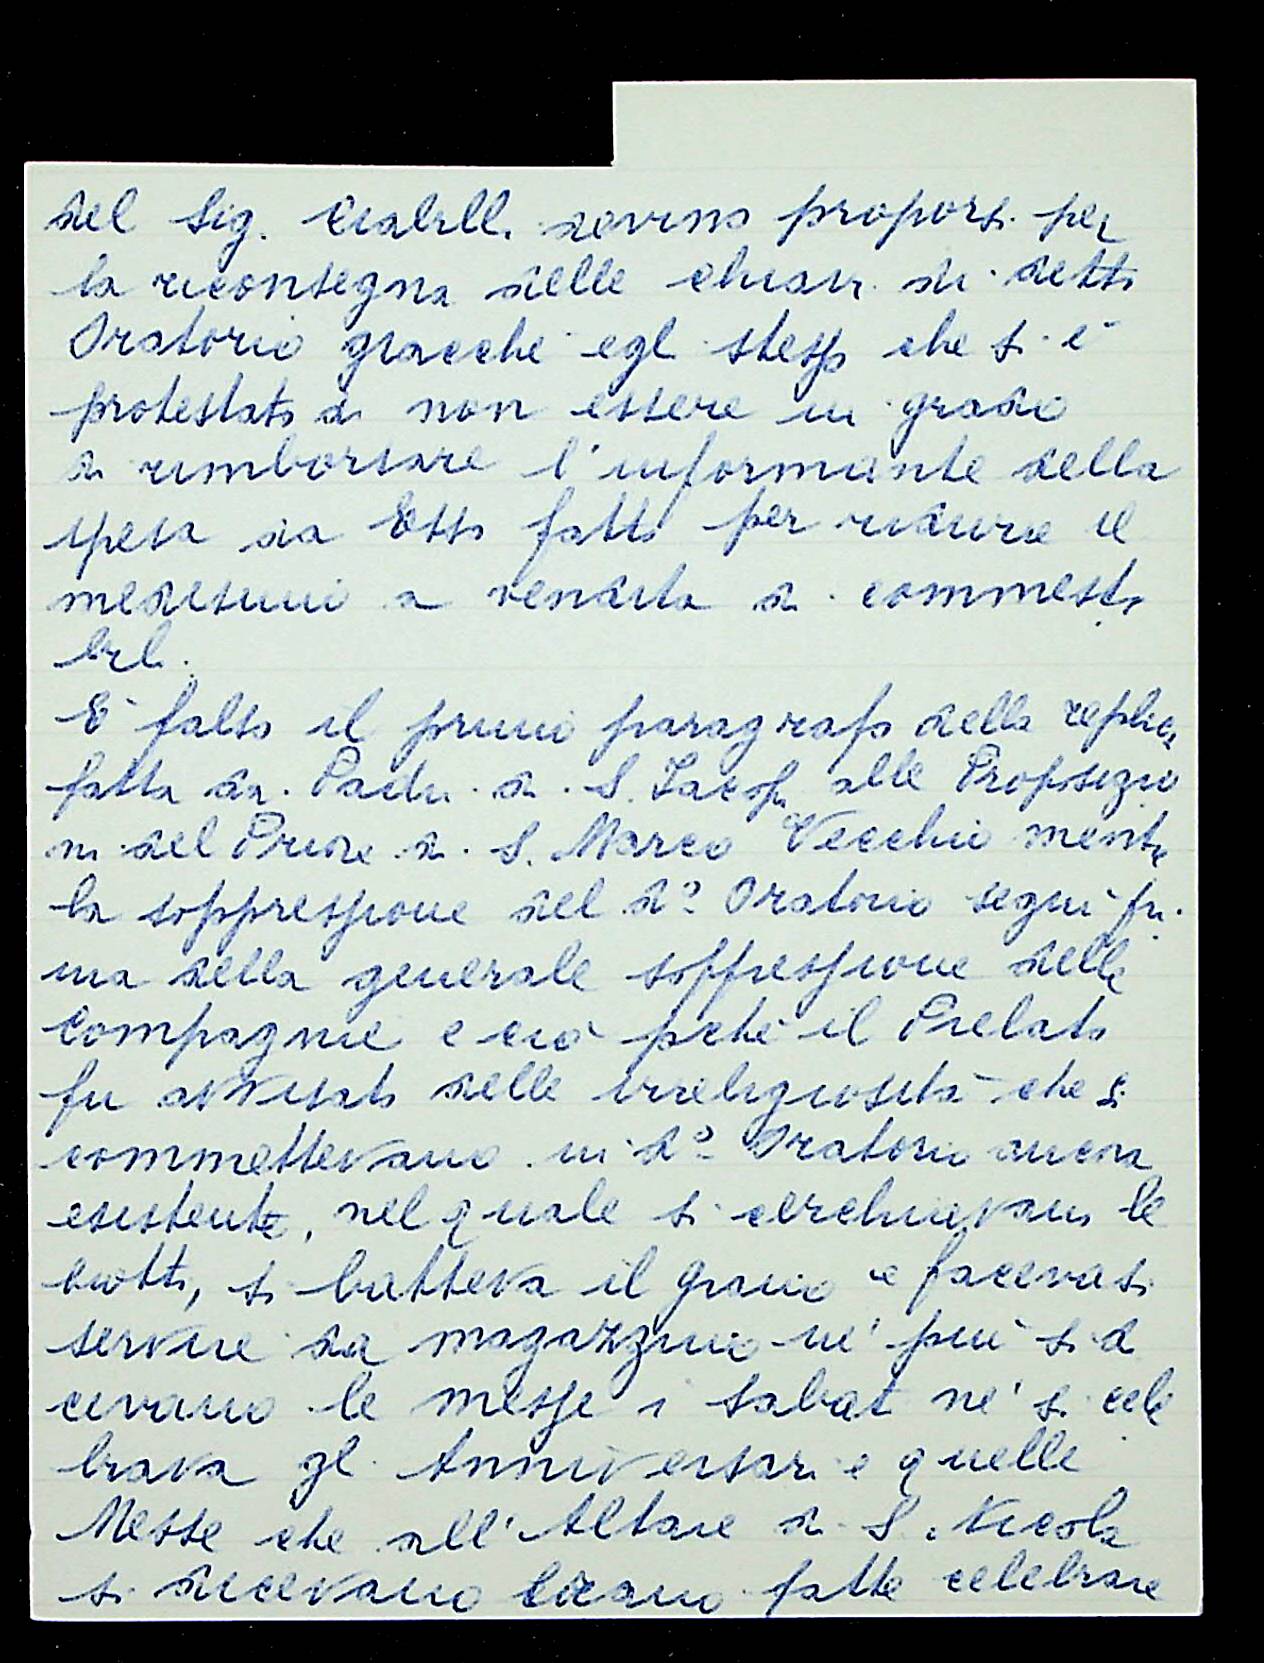 del Sig. devino propors. per
la riconsegna delle chiavi di detto
Oratorio giacche egli stesso che si è
protestato di non essere in grado
di rimborsare l'informante della
spesa da Esso fatto per ridurre il
medesimo a vendita di commesti
bili.
E' falso il primo paragrafo della replica
fatta da Padri di S. Jacopo alle Proposizio
ni del Priore di S. Marco Vecchio mentre
la soppressione del dº Oratorio seguì pri
ma della generale soppressione delle
Compagnie e ciò pchè il Prelato
fu avvisato delle irreligiosità che si
commettevano in dº Oratorio ancora
esistente, nel quale si cerchievano le
botti, si batteva il grano e facevasi
servire da magazzino nè più si di
cevano le messe i sabati nè si cele
brava gli Anniversari e quelle
Messe che all'Altare di S. Nicola
si dicevano erano fatte celebrare